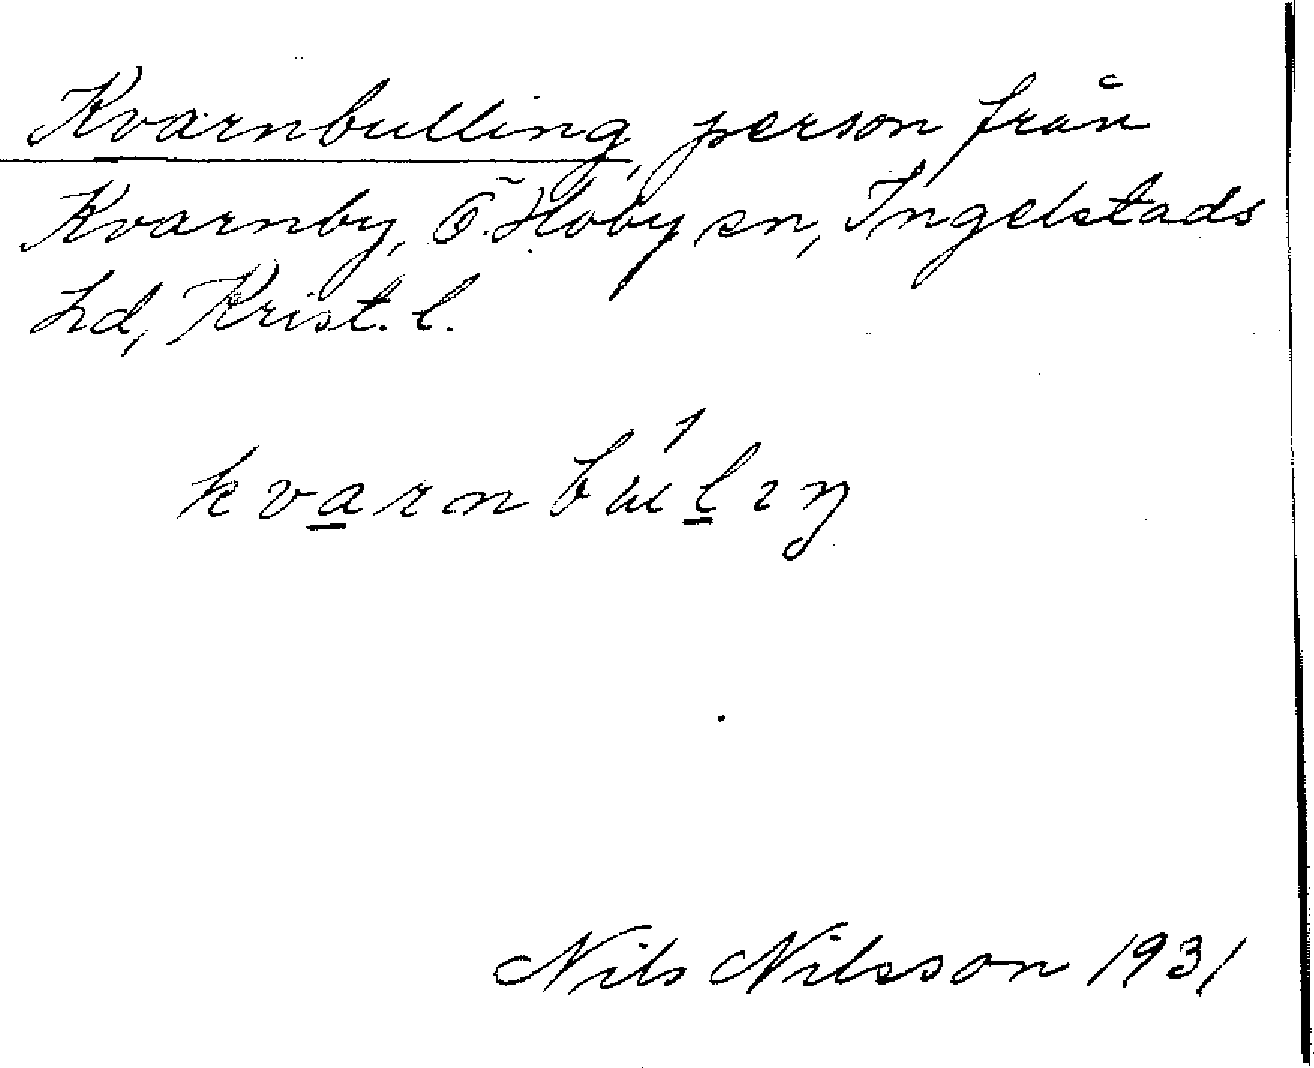 Kvarnbulling, person från
Kvarnby, Ö. Hoby sn, Ingelstads
hd, Krist. l.
kvarnbúlıŋ
Nils Nilsson 1931